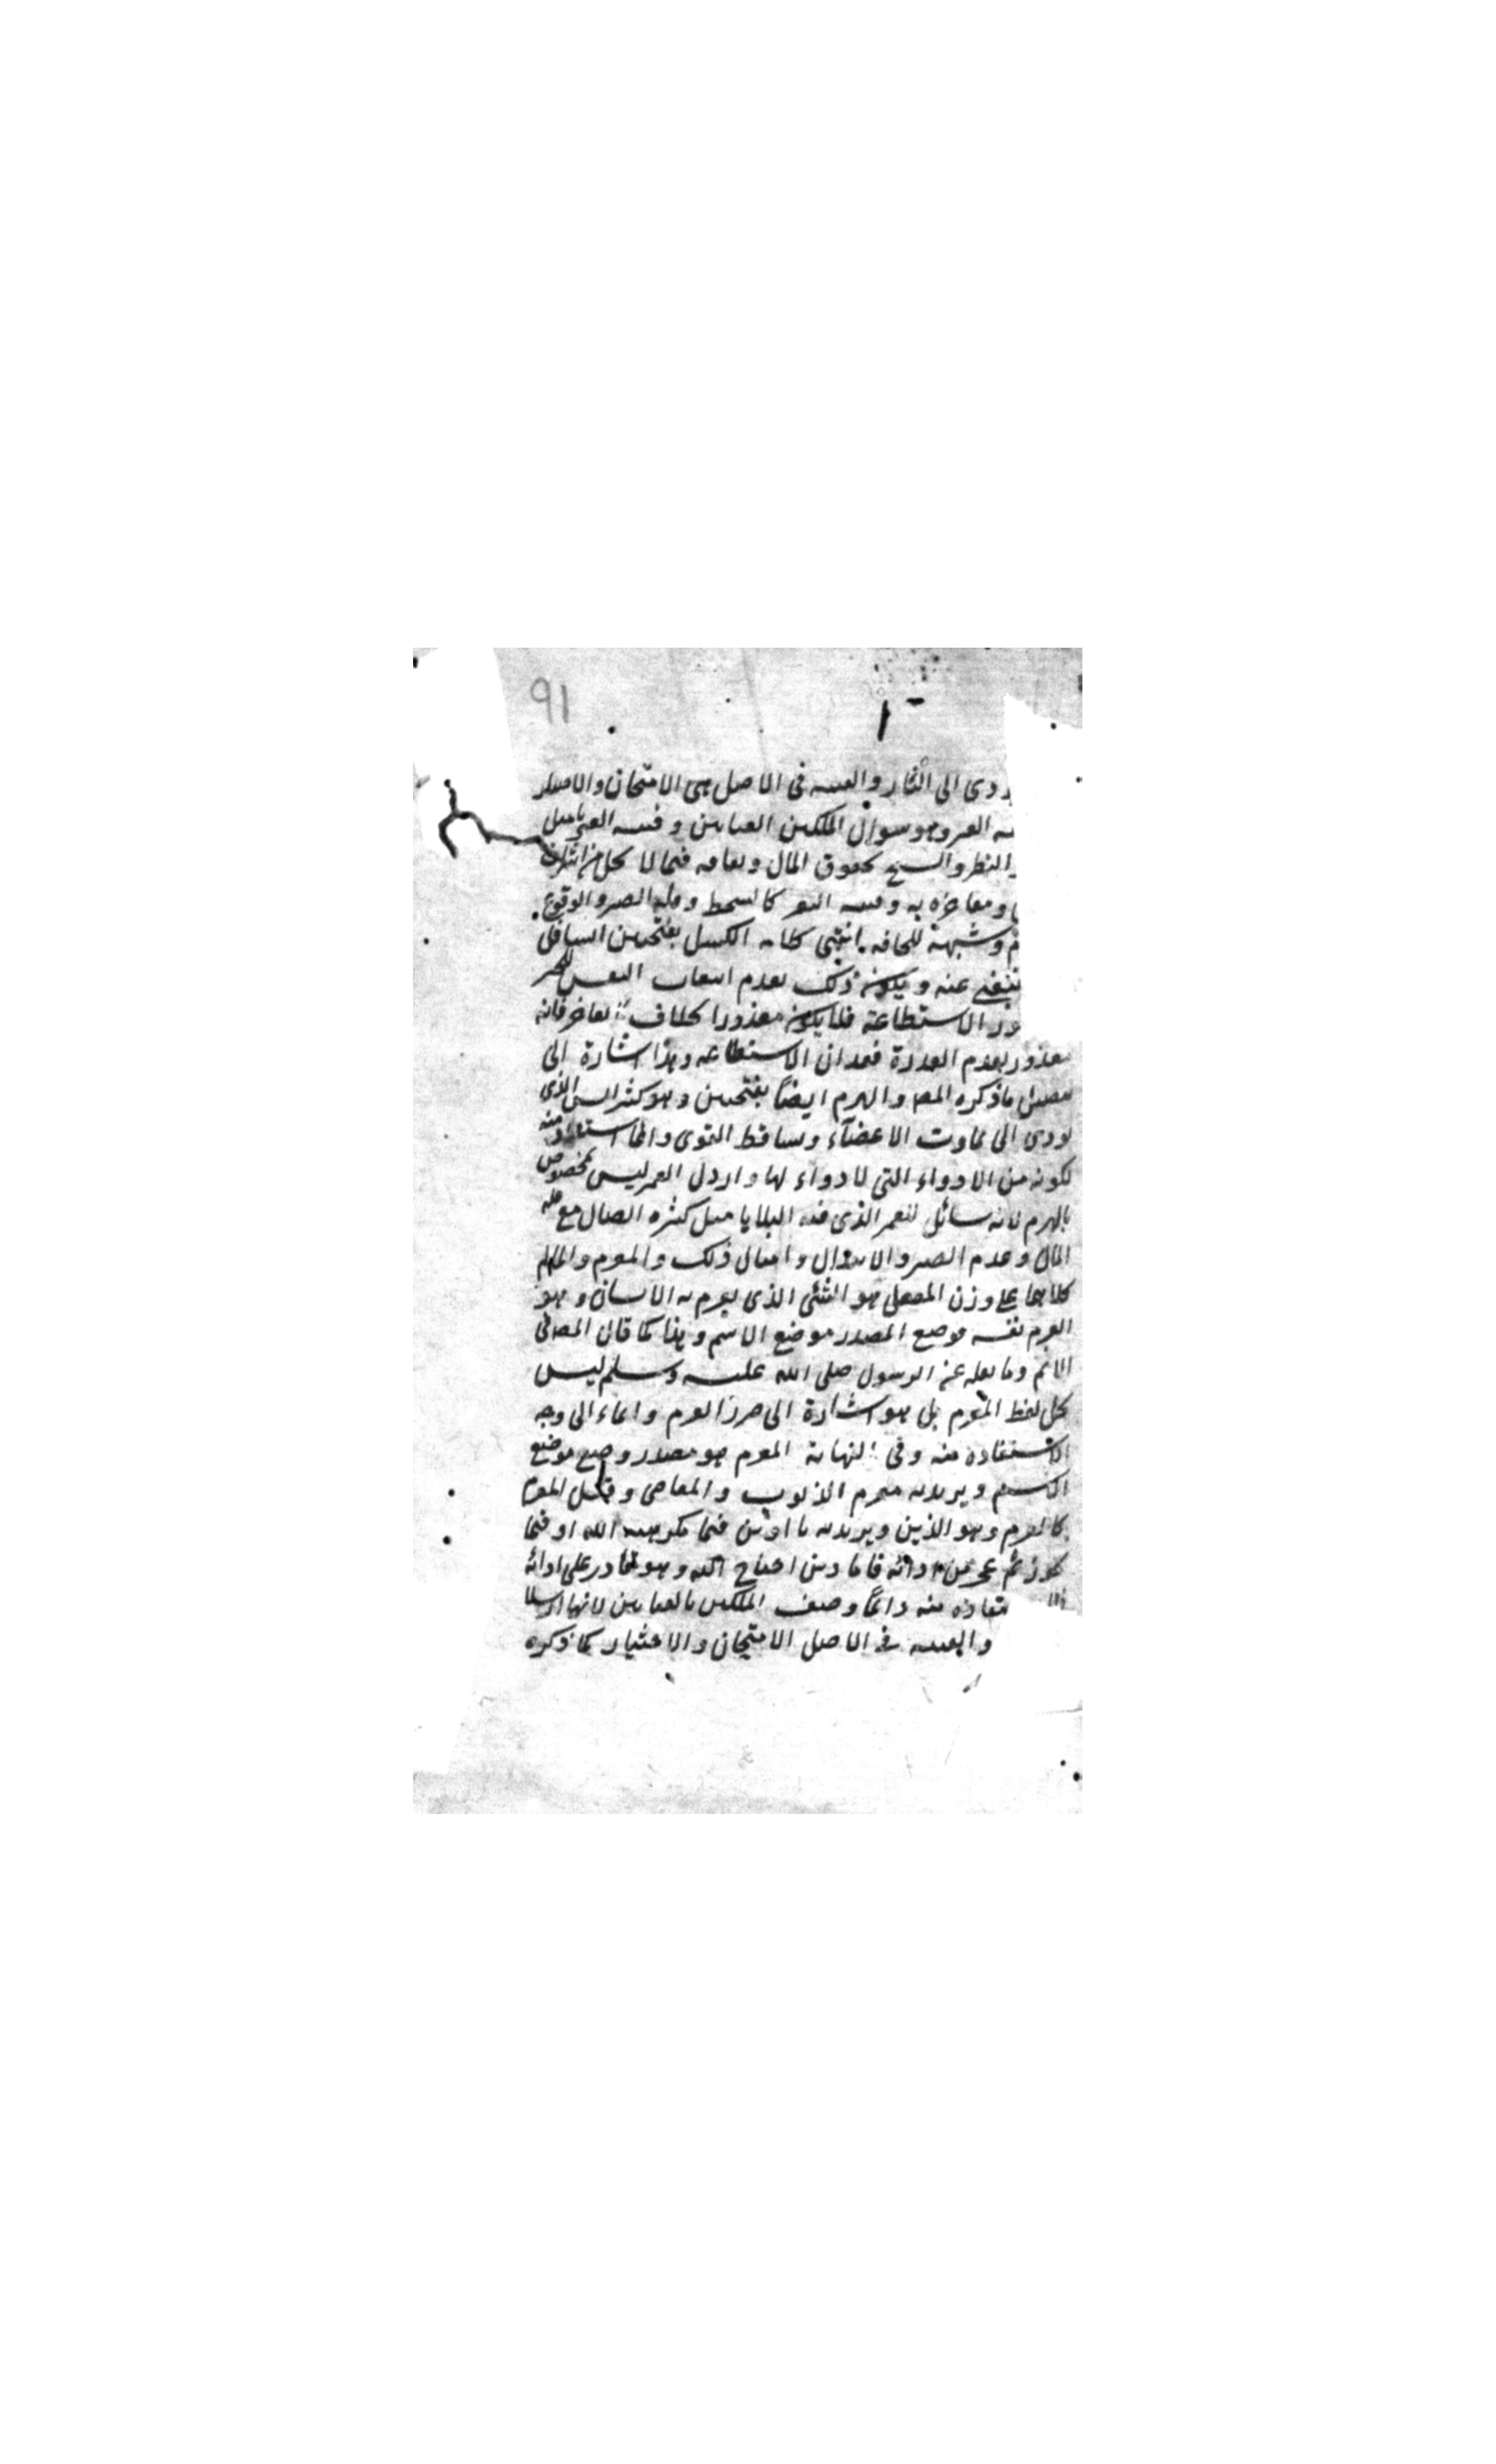 91
ودى الى النار والفتنه فى الاصل هى الامتحان والاختبار
القبر وهو سوال الملكين الفتانين وفتنه الغنى
البطر والشح بحقوق المال وانفاقه فيما لا يحل من اشراف
ومفاخره به وفتنه الفقر كالسخط وقله الصبر والوقوع
وشبهة للحاقه انتهى كلامه الكسل بفتحتين التثاقل
عنه ويكون ذلك لعدم انبعاث النفس للخير
الاستطاعة فلا يكون معذورا بخلاف العاجز فانه
معذور لعدم القدرة فقدان الاستطاعه وهذا اشارة الى
ما ذكره المص والهرم ايضاً بفتحتين وهو كبر السن الذى
يودى الى تفاوت الاعضآء وتساقط القوى وانما استعاذ منه
لكونه من الادواء التى لا دواء لها وارذل العمر ليس بمخصوص
بالهرم لانه سائل للعمر الذى فيه البلايا مثل كثره العيال مع قله
المال وعدم الصبر والابتذال وامثال ذلك والمغرم والماثم
كلاهما على وزن المفعل هو الشئ الذى يغرم به الانسان وهو
الغرم نفسه موضع المصدر موضع الاسم وهذا كما قال المص فى
الاثم وما نقله عن الرسول صلى الله عليه وسلم ليس
كل لفظ المغرم بل هو اشارة الى ضرر الغرم وايماء الى وجه
الاستعاذه منه وفى النهاية المغرم هو مصدر وضع موضع
الاسم ويريد به مغرم الذنوب والمعاصى وقيل المغرم
كالغرم وهو الدين ويريد به ما ادين فيما يكرهه الله او فيما
يجوز ثم عجز عن ادائه فاما دين احتاج اليه وهو قادر على ادائه
منه دائماً وصف الملكين بالفتانين لانهما
والفتنه فى الاصل الامتحان والاختبار كما ذكره